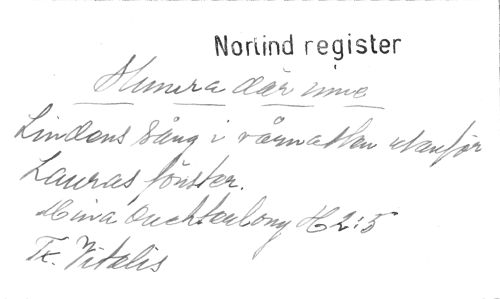 Norlind register
Humra där inne
Lindens sång i vårnatten utanför
Lauras fönster.
Mina Ouchterlony H2:5
Tr. Vitalis